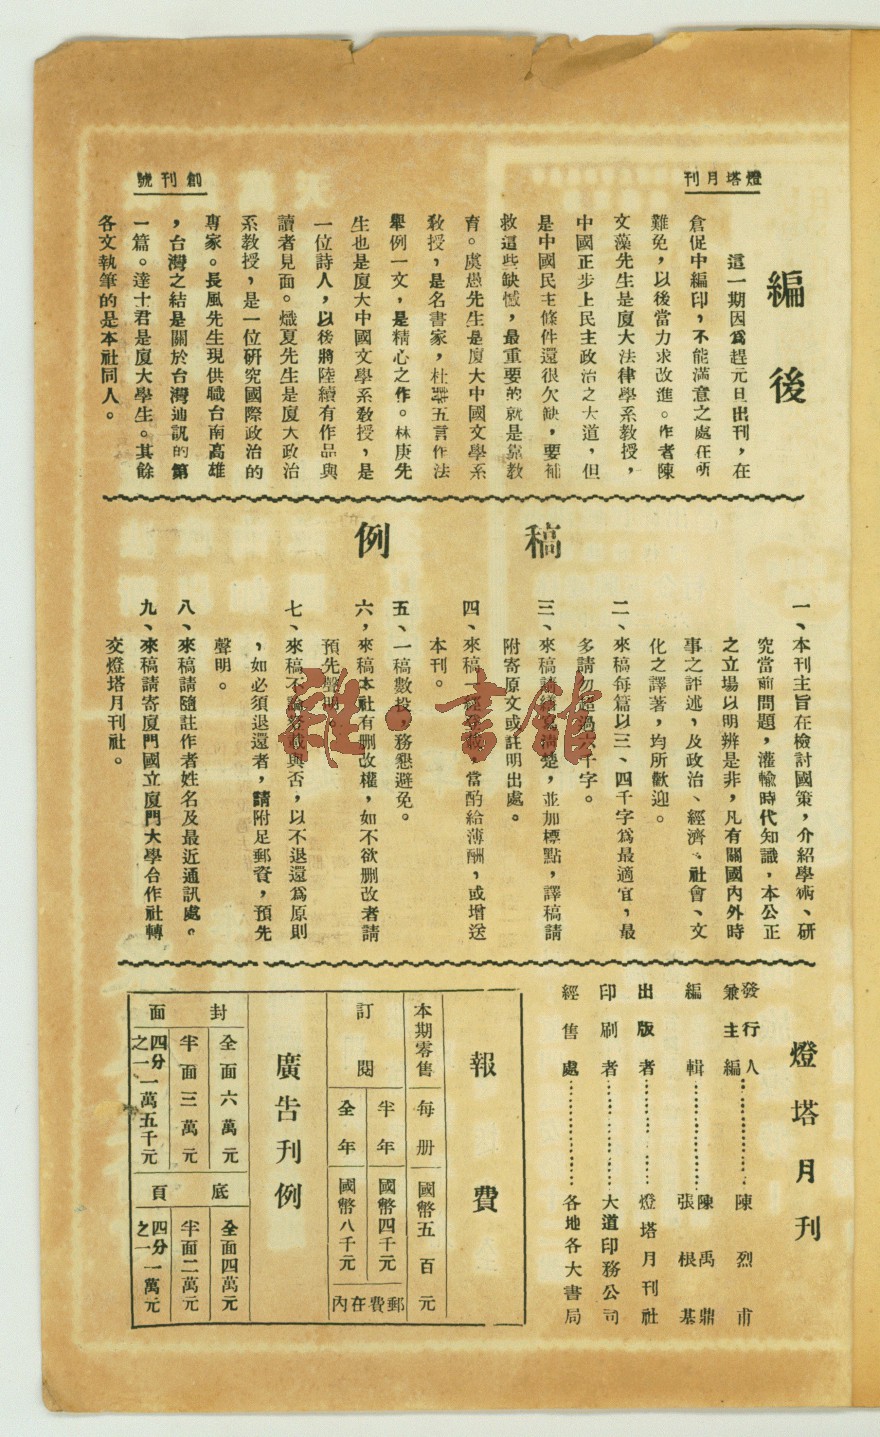 燈塔月刊
創刊號
編後
這一期因爲趕元旦出刊，在
倉促中編印，不能滿意之處在所
難免，以後當力求改進。作者陳
文藻先生是廈大法律學系教授，
中國正步上民主政治之大道，但
是中國民主條件還很欠缺，要補
救這些缺憾，最重要的就是靠教
育。虞愚先生是廈大中國文學系
敎授，是名書家，杜詩五言作法
舉例一文，是精心之作。林庚先
生也是廈大中國文學系敎授，是
一位詩人，以後將陸續有作品與
讀者見面。熾夏先生是廈大政治
系教授，是一位研究國際政治的
專家。長風先生現供職台南高雄
，台灣之結是關於台灣通訊的第
一篇。達士君是廈大學生。其餘
各文執筆的是本社同人。
稿例
一、本刊主旨在檢討國策，介紹學術、研
究當前問題，灌輸時代知識，本公正
之立場以明辨是非，凡有關國內外時
事之評述，及政治、經濟、社會、文
化之譯著，均所歡迎。
二、來稿每篇以三、四千字爲最適宜，最
多請勿超過六千字。
三、來稿請繕寫清楚，並加標點，譯稿請
附寄原文或註明出處。
四、來稿一經登載，當酌給薄酬，或增送
本刊。
五、一稿數投，務懇避免。
六，來稿本社有删改權，如不欲删改者請
預先聲明。
七、來稿不論登載與否，以不退還爲原則
，如必須退還者，請附足郵資，預先
聲明。
八、來稿請隨註作者姓名及最近通訊處。
九、來稿請寄廈門國立廈門大學合作社轉
交燈塔月刊社。
雜·書館
燈塔月刊
發行人兼主編………………陳烈甫
編輯………………陳禹鼎
張根基
出版者………………燈塔月刊社
印刷者………………大道印務公司
經售處………………各地各大書局
報費
本期零售 每册 國幣五百元
訂閱 半年 國幣四千元
全年 國幣八千元
郵費在內
廣告刊例
封面
全面六萬元
半面三萬元
四分之一一萬五千元
底頁
全面四萬元
半面二萬元
四分之一一萬元